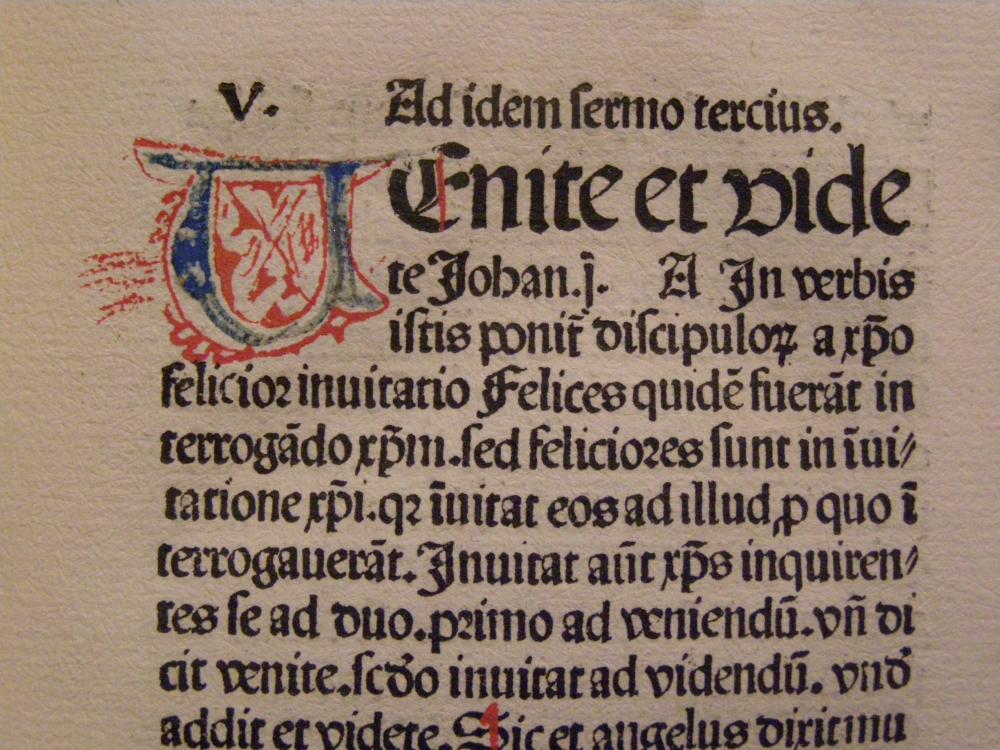 V. Ad idem ſermo tercius.
VEnite et vide
te Johan.j. A In verbis
iſtis ponit̄ diſcipuloꝝ a xp̄o
felicioꝛ inuitatio Felices quidē fuerāt in
terrogādo xp̄m.ſed felicioꝛes ſunt in īui⸗
tatione xp̄i.qꝛ īuitat eos ad illud ꝓ quo ī
terrogauerāt. Inuitat aūt xp̄s inquiren⸗
tes ſe ad duo.pꝛimo ad veniendū.vn̄ di
cit venite.ſcd̓o inuitat ad videndū. vnd̓
addit et videte. Sic et angelus dixit mu